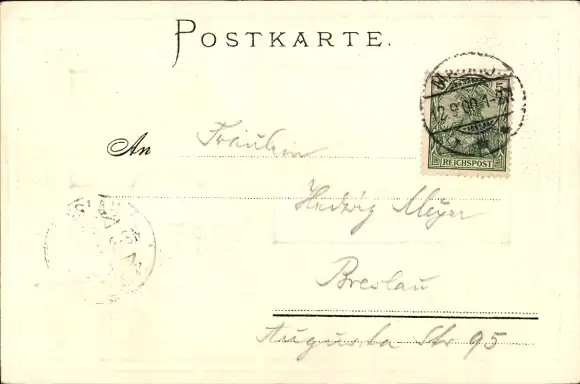 POSTKARTE.
5
12.9.00.
REICHSPOST
An Fräulein
Hedwig Meyer
Breslau
Augusta Str 95